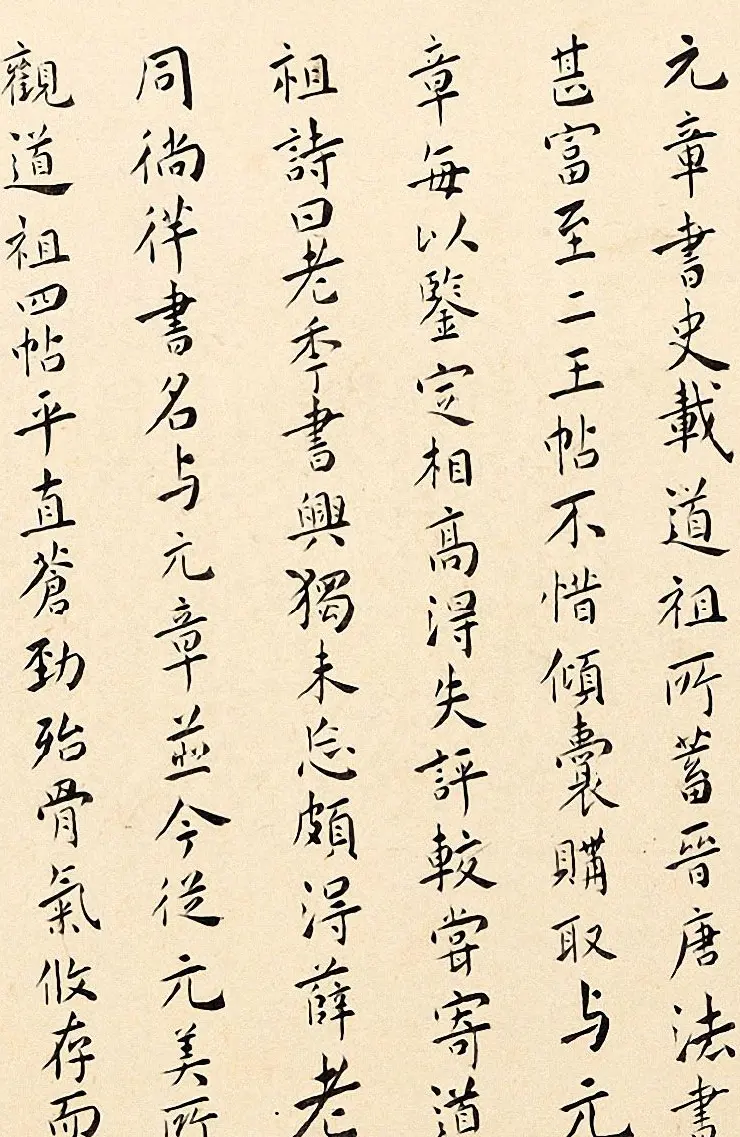 元章書史載道祖所蓄晉唐法書
甚富至二王帖不惜傾囊購取与元
章每以鑒定相高得失評較嘗寄道
祖詩曰老季書興獨未忘頗得薛老
同徜徉書名与元章並今從元美所
觀道祖四帖平直蒼勁殆骨氣攸存而